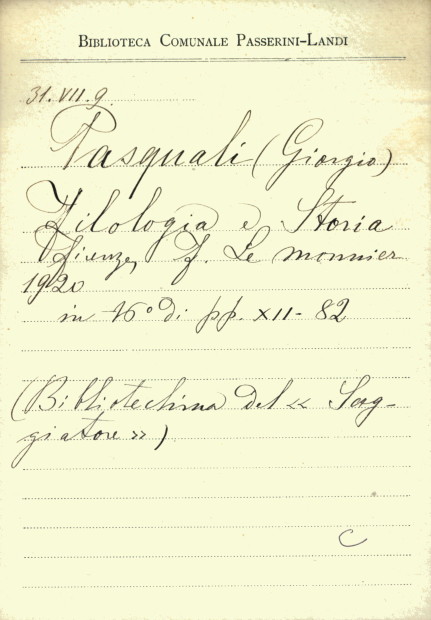 BIBLIOTECA COMUNALE PASSERINI-LANDI
31. VII. 9
Pasquali (Giorgio)
Filologia e Storia
Firenze, F. Le Monnier
1920
in 16° di pp. XII - 82
(Bibliotechina del « Sag-
giatore » )
C